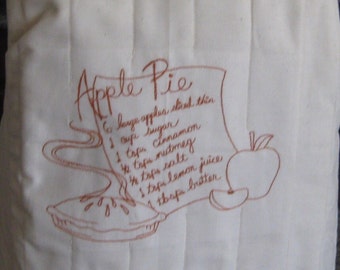 Apple Pie
6 large apples sliced thin
1 cup sugar
1 tsps cinnamon
½ tsps nutmeg
¼ tsps salt
1 tsps lemon juice
1 tbsps butter